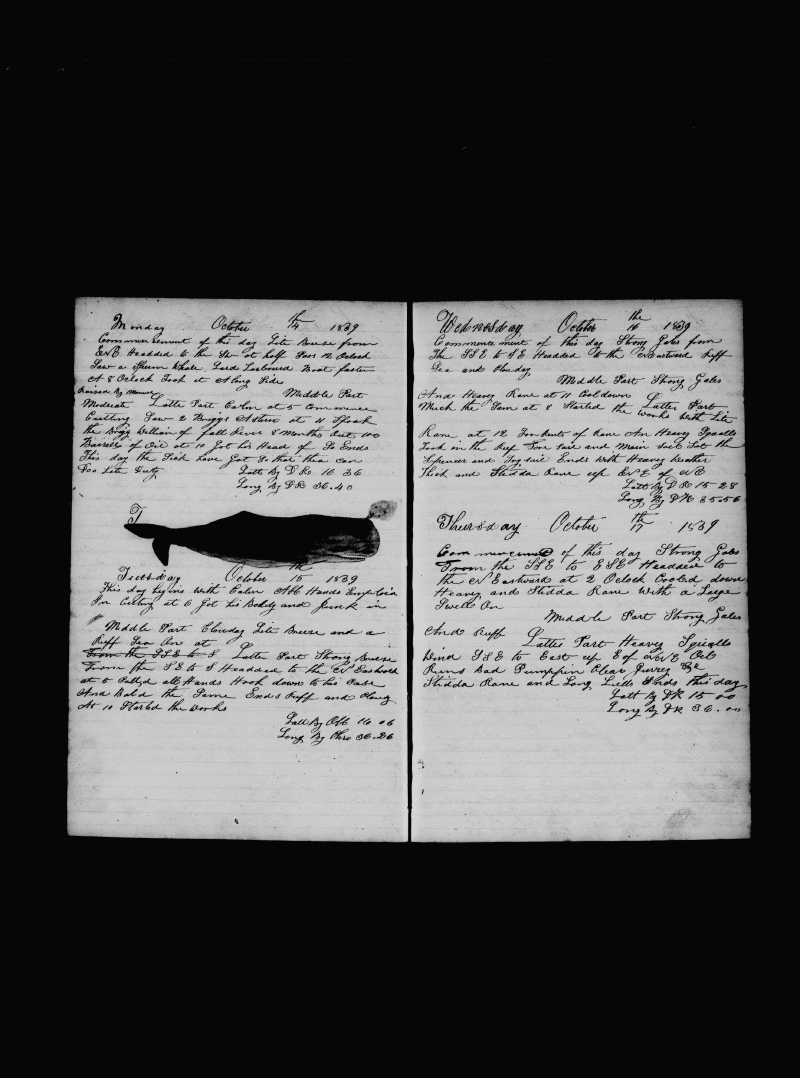 Monday October 14th 1839
Commencement of this day Lite Breese from
ENE Headded to the at half Pas 12 Oclock
Saw a Sperm Whale Lard Larbourd Boat fasten
At 8 Oclock Took it Along Side
Raised By Middle Part
Moderate Latter Part Calm at 5 Commence
Cutting Saw 2 Briggs Astern at 11 Spoak
the Brigg William of fall River 8 Months Out 140
Barrels of Oil at 10 Got his Head of So Ends
This day the Fish have Got So that thea can
Too Late Duty Latt By D R 16 36
Long By D R 36.40
T
Tuesday October 15th 1839
This day begins With Calm All Hands Imploid
In Cutting at 6 Got his Boddy and Junk in
Middle Part Clowday Lite Breese and a
Ruff Sea On at
From the SSE to S Latter Part Strong Breese
From the SE to S Headded to the N Eastward
at 5 Calld all Hands Hook down to his Case
And Bald the Same Ends Ruff and
At 10 Started the Works
Latt By Obb 16 06
Long By Chro 36.26
Wednesday October 16 the 1839
Commencement of this day Strong Gales from
The SSE to SE Headded to the N Eastward Ruff
Sea and Clouday
Middle Part Strong Gales
And Heavy Rane at 11 Cooldown
Much the Sam at 8 Started the Works With Lite Latter Part
Rane at 12 For Rents of Rane An Heavy Squalls
Took in the Fore Sail and Main Sail Sot the
Spencer and Ends With Heavy Weather
Thick and Studda Rane up ENE of NE
Latt By D R 15 28
Long By D R 35.56
Thursday October 17th 1839
Commencement of this day Strong Gales
From the SSE to ESE Headded to
the N Eastward at 2 Oclock Cooled down
Heavy and Studda Rane With a Large
Swell On
Middle Part Strong Gales
And Ruff Latter Part Heavy Squalls
Wind SSE to East up E of NNE
Runs Bad Pumpkin
Studda Rane and Long Ends this day
Latt By D R 15 00
Long By D R 36.00